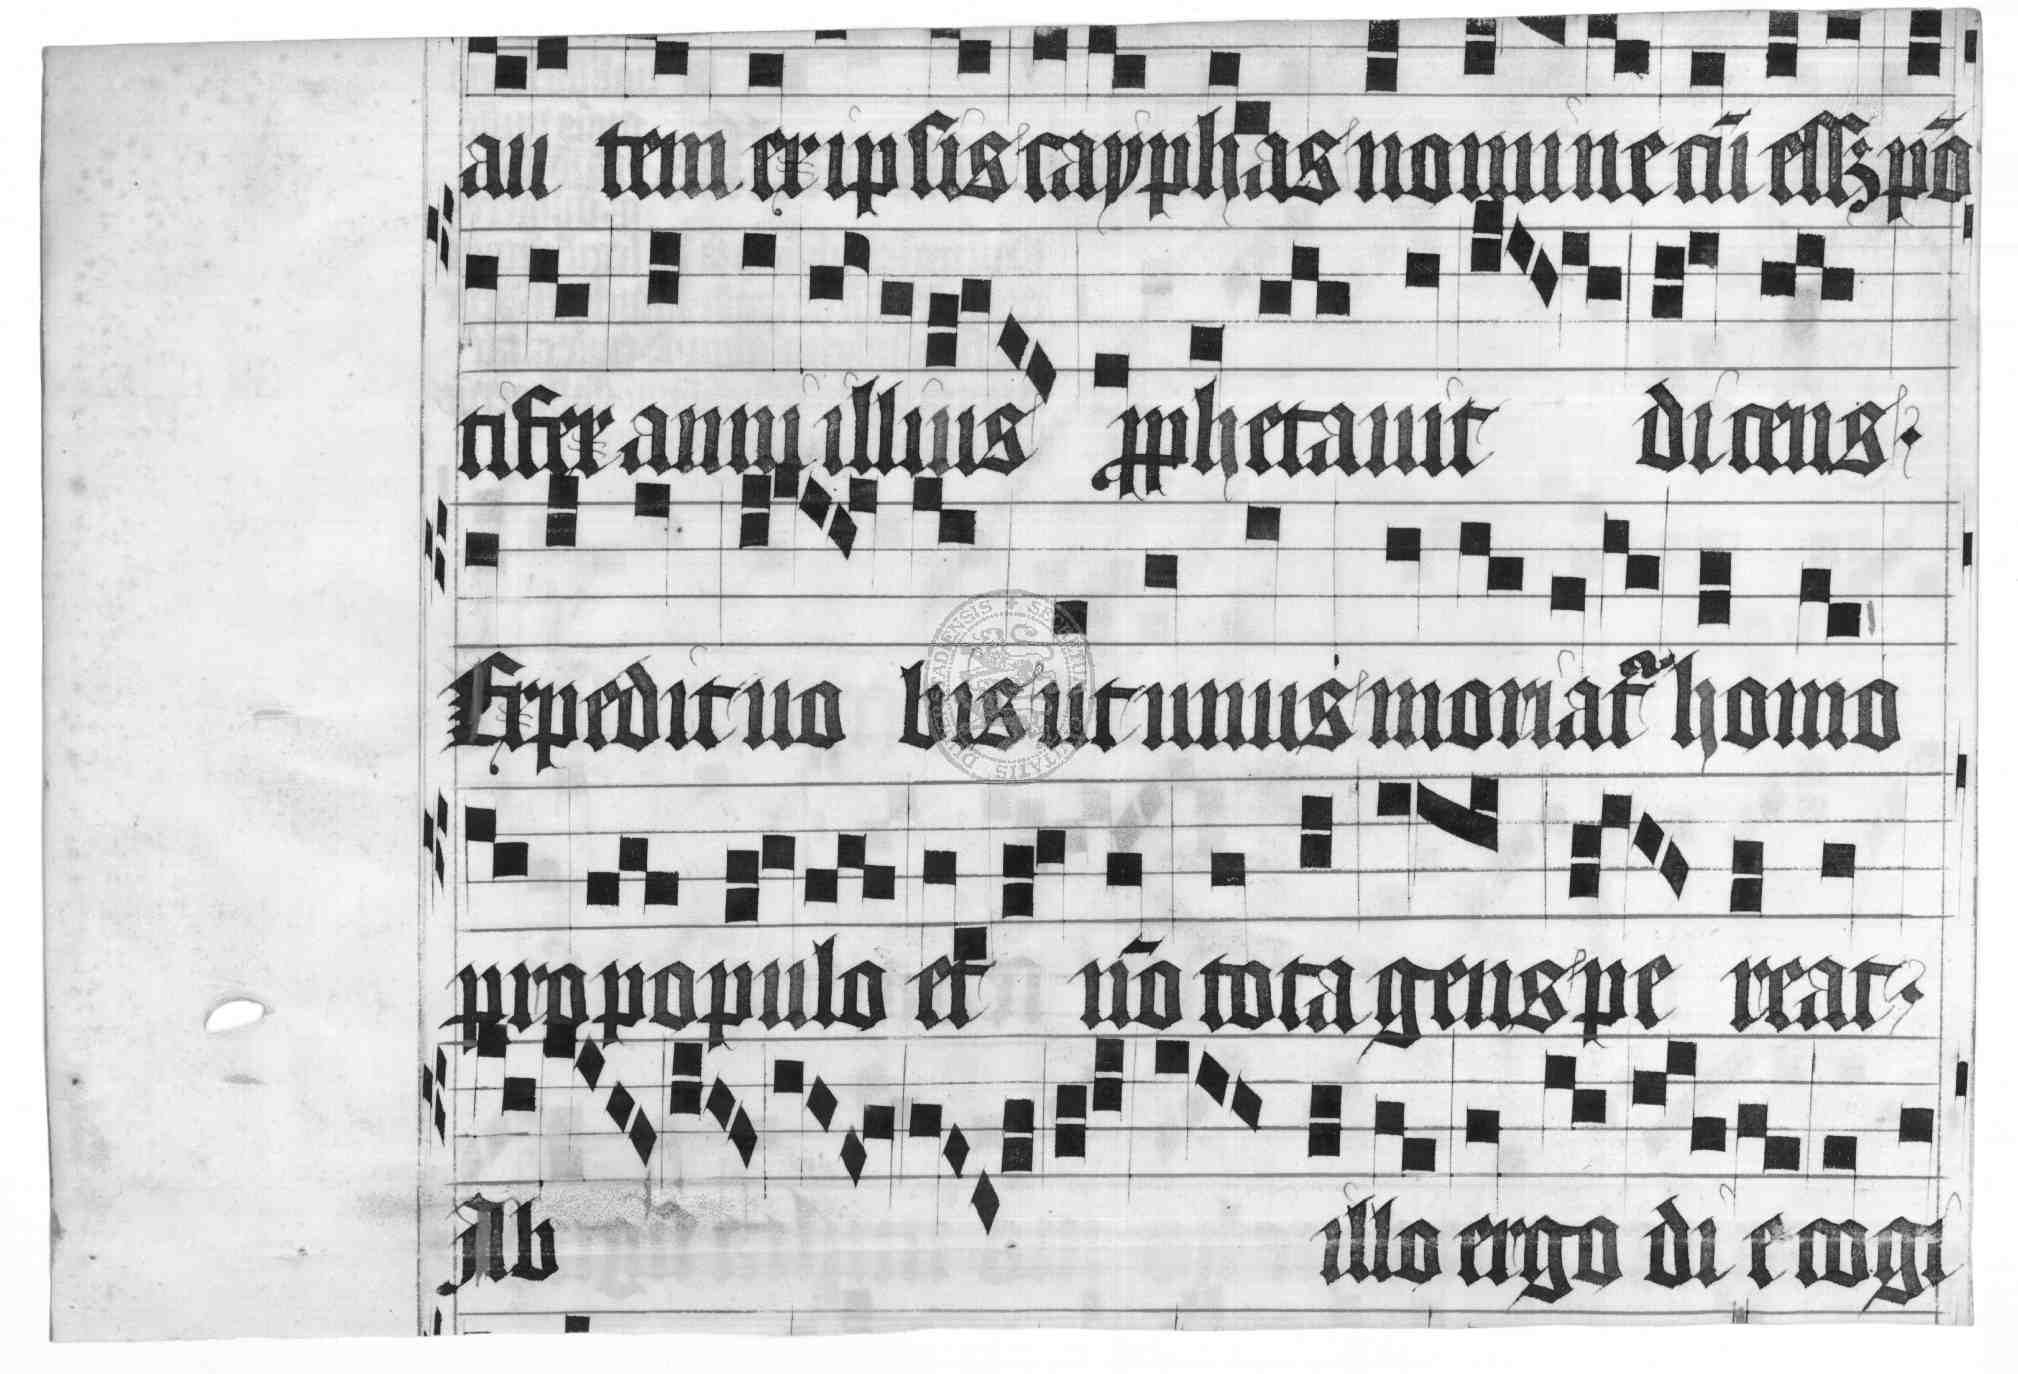 au tem ex ipsis cayphas nomine cū essꝫ pō
tifex anni illius ꝓphetauit dicens.
Expedit uo bis ut unus moriatᷓ homo
pro populo et nō tota gens pe reat.
Ab illo ergo di e cogi